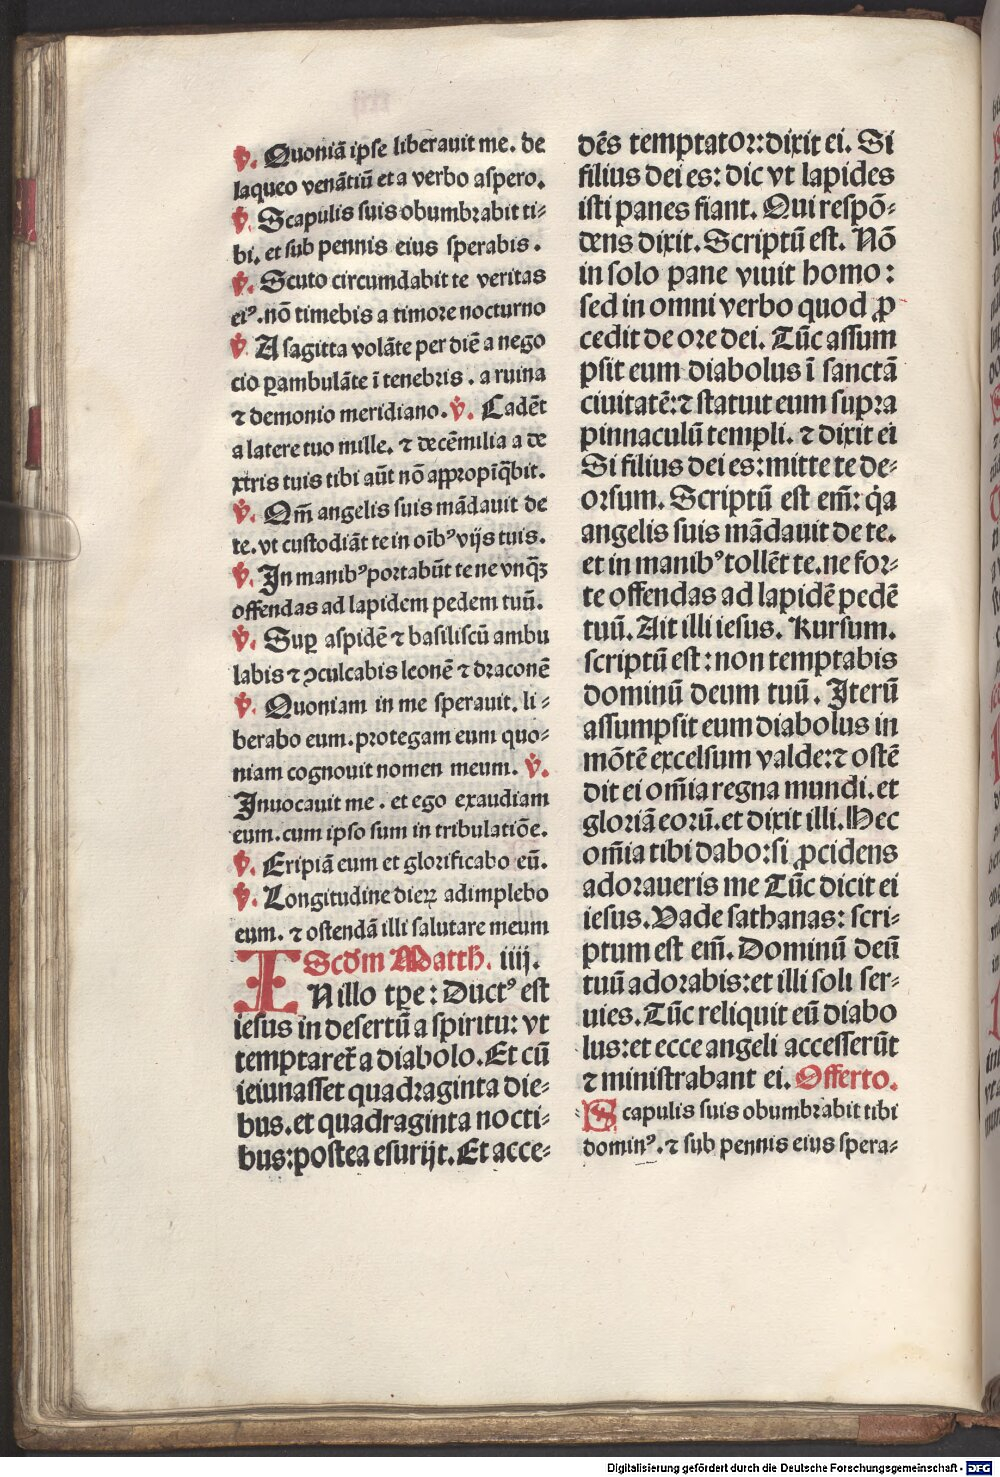 ℣. Quoniā ipse liberauit me. de
laqueo venātiū et a verbo aspero.
℣. Scapulis suis obumbrabit ti-
bi. et sub pennis eius sperabis.
℣. Scuto circumdabit te veritas
eiꝰ. nō timebis a timore nocturno
℣. A sagitta volāte per diē a nego
cio ꝑambulāte ī tenebris. a ruina
⁊ demonio meridiano. ℣. Cadēt
a latere tuo mille. ⁊ decēmilia a de
xtris tuis tibi aūt nō appropīq̄bit.
℣. Qm̄ angelis suis mādauit de
te. vt custodiāt te in oībꝰ vijs tuis.
℣. In manibꝰ portabūt te ne vnq̄ꝫ
offendas ad lapidem pedem tuū.
℣. Suꝑ aspidē ⁊ basiliscū ambu
labis ⁊ ꝯculcabis leonē ⁊ draconē
℣. Quoniam in me sperauit. li-
berabo eum. protegam eum quo-
niam cognouit nomen meum. ℣.
Inuocauit me. et ego exaudiam
eum. cum ipso sum in tribulatiōe.
℣. Eripiā eum et glorificabo eū.
℣. Longitudine dieꝝ adimplebo
eum. ⁊ ostendā illi salutare meum
Scd̄m Matth. iiij.
IN illo tꝑe: Ductꝰ est
iesus in desertū a spiritu: vt
temptaret᷑ a diabolo. Et cū
ieiunasset quadraginta die-
bus. et quadraginta nocti-
bus: postea esurijt. Et acce-
dēs temptator: dixit ei. Si
filius dei es: dic vt lapides
isti panes fiant. Qui respō-
dens dixit. Scriptū est. Nō
in solo pane viuit homo:
sed in omni verbo quod ꝓ
cedit de ore dei. Tūc assum
psit eum diabolus ī sanctā
ciuitatē: ⁊ statuit eum supra
pinnaculū templi. ⁊ dixit ei
Si filius dei es: mitte te de-
orsum. Scriptū est em̄: q̇a
angelis suis mādauit de te.
et in manibꝰ tollēt te. ne for-
te offendas ad lapidē pedē
tuū. Ait illi iesus. Rursum.
scriptū est: non temptabis
dominū deum tuū. Iterū
assumpsit eum diabolus in
mōtē excelsum valde: ⁊ ostē
dit ei om̄ia regna mundi. et
gloriā eorū. et dixit illi. Hec
om̄ia tibi dabo: si ꝓcidens
adoraueris me Tūc dicit ei
iesus. Vade sathanas: scri-
ptum est em̄. Dominū deū
tuū adorabis: et illi soli ser-
uies. Tūc reliquit eū diabo
lus: et ecce angeli accesserūt
⁊ ministrabant ei. Offerto.
Scapulis suis obumbrabit tibi
dominꝰ. ⁊ sub pennis eius spera-
Digitalisierung gefördert durch die Deutsche Forschungsgemeinschaft - DFG